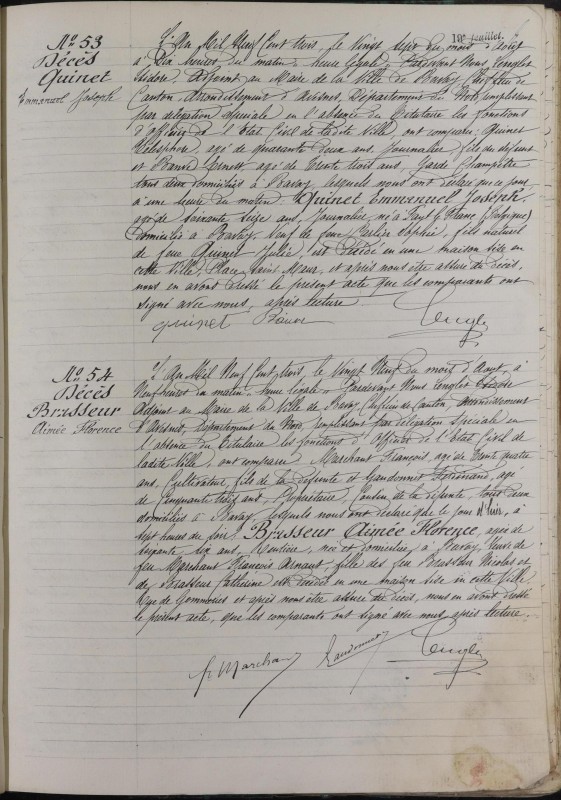 19e feuillet.
No 53
Décès
Quinet
Emmanuel Joseph
L'An Mil Neuf Cent trois, le Vingt Sept du mois d'Août
à Dix heures du matin, heure légale, Pardevant Nous Lenglet
Isidore Adjoint au Maire de la Ville de Bavay Chef lieu de
Canton, Arrondissement d'Avesnes, Département du Nord, remplissant
par délégation spéciale en l'absence du Titulaire les fonctions
d'officier de l'Etat Civil de ladite Ville, ont comparu, Quinet
agé de quarante deux ans, Journalier, fils du défunt
et Ernest, agé de trente trois ans, Garde Champêtre
tous deux domiciliés à Bavay, lesquels nous ont déclaré que ce jour,
à une heure du matin, Quinet Emmanuel Joseph,
agé de soixante seize ans, Journalier, né à (Belgique)
domicilié à Bavay, Veuf de feue Sophie, fils naturel
de feue Quinet Julie, est décédé en une maison sise en
cette Ville, Place Saint Maur, et après nous être assuré du décès,
nous en avons dressé le présent acte que les comparants ont
signé avec nous, après lecture
quinet Lenglet
No 54
Décès
Brasseur
Aimée Florence
L'An Mil Neuf Cent trois, le Vingt Neuf du mois d'Août, à
Neuf heures du matin, heure légale, Pardevant Nous Lenglet Isidore
Adjoint au Maire de la Ville de Bavay, Chef lieu de Canton, Arrondissement
d'Avesnes, Département du Nord, remplissant par délégation spéciale en
l'absence du Titulaire les fonctions d'Officier de l'Etat Civil de
ladite Ville, ont comparu Marchant François, agé de trente quatre
ans, Cultivateur, fils de la défunte et Gaudonnet Ferdinand, agé
de cinquante trois ans, Propriétaire, de la défunte, tous deux
domiciliés à Bavay, lesquels nous ont déclaré que le jour d'hier, à
sept heures du soir, Brasseur Aimée Florence, agée de
septante dix ans, Rentière, née et domiciliée à Bavay, Veuve de
feu Marchant François Arnaud, fille des feu Brasseur Nicolas et
de Brasseur Catherine est décédée en une maison sise en cette Ville
Rue de Gommeries et après nous être assuré du décès, nous en avons dressé
le présent acte, que les comparants ont signé avec nous après lecture.
f. Marchant Gaudonnet Lenglet